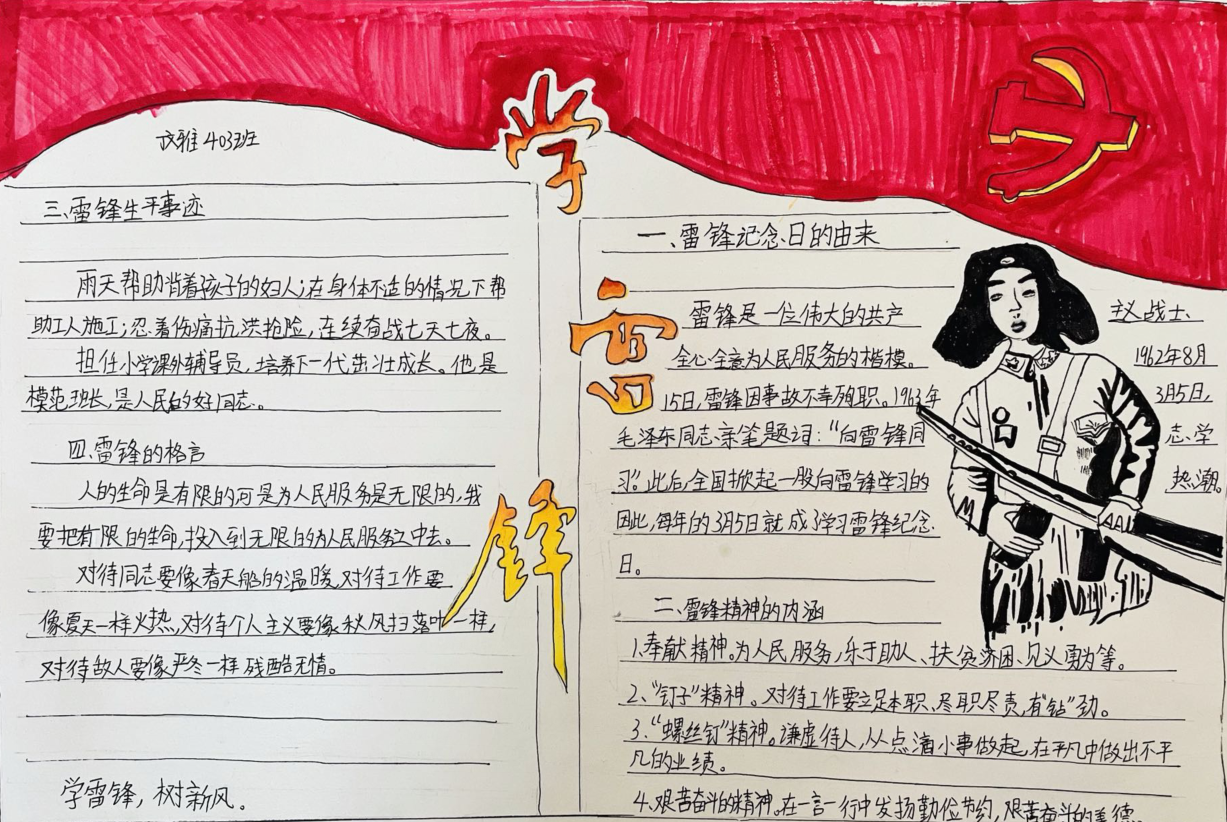 学雷锋
文雅403班
一、雷锋记念日的由来
雷锋是一位伟大的共产主义战士、
全心全意为人民服务的楷模。1962年8月
15日,雷锋因事故不幸殉职。1963年3月5日,
毛泽东同志亲笔题词:“向雷锋同志学
习”。此后,全国掀起一股向雷锋学习的热潮。
因此,每年的3月5日就成了学习雷锋纪念
日。
二、雷锋精神的内涵
1.奉献精神。为人民服务,乐于助人、扶贫济困、见义勇为等。
2.“钉子”精神。对待工作要立足本职、尽职尽责,有“钻”劲。
3.“螺丝钉”精神。谦虚待人,从点滴小事做起,在平凡中做出不平
凡的业绩。
4.艰苦奋斗的精神。在一言一行中发扬勤俭节约,艰苦奋斗的美德。
三、雷锋生平事迹
雨天帮助背着孩子的妇人;在身体不适的情况下帮
助工人施工;忍着伤痛抗洪抢险,连续奋战七天七夜。
担任小学课外辅导员,培养下一代茁壮成长。他是
模范班长,是人民的好同志。
四、雷锋的格言
人的生命是有限的可是为人民服务是无限的,我
要把有限的生命,投入到无限的为人民服务之中去。
对待同志要像春天般的温暖,对待工作要
像夏天一样火热,对待个人主义要像秋风扫落叶一样,
对待敌人要像严冬一样残酷无情。
学雷锋,树新风。